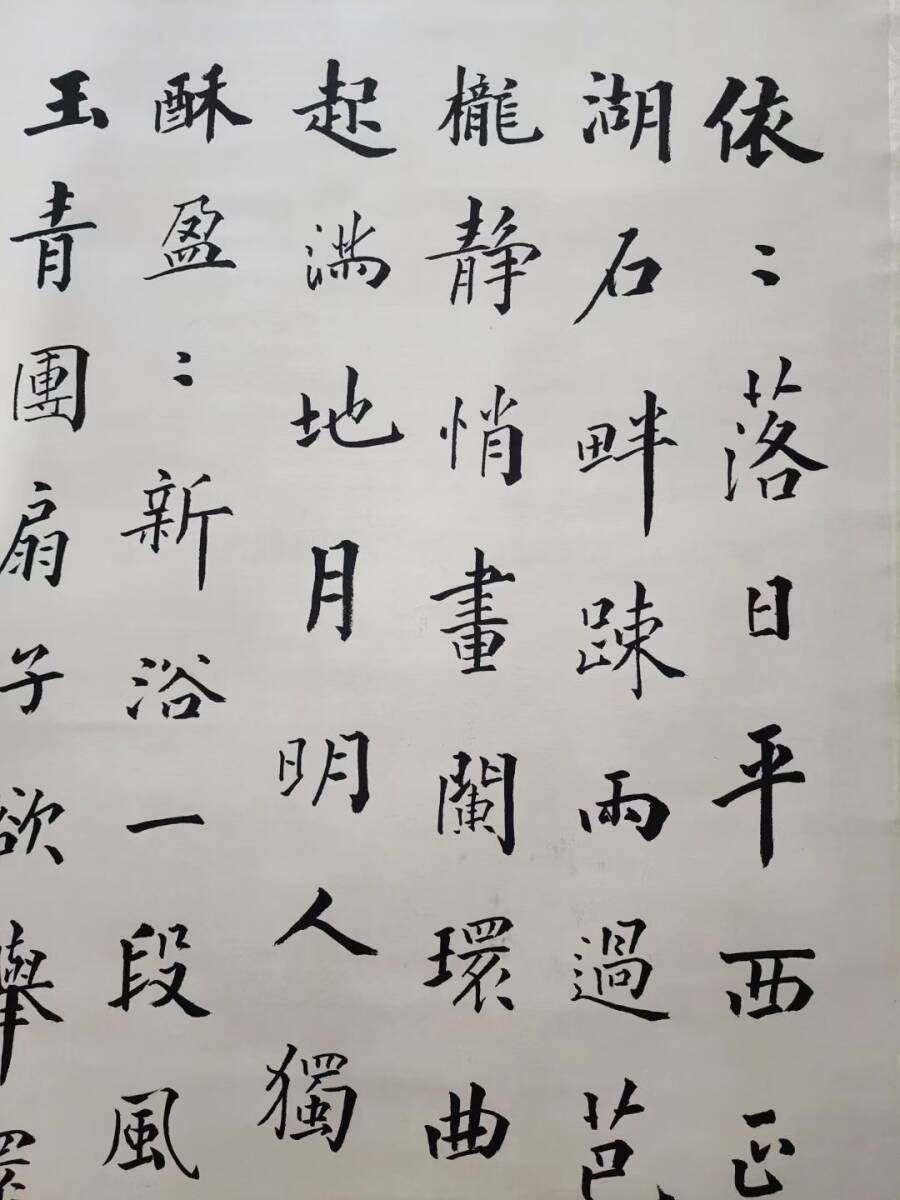 依〻落日平西正
湖石畔踈雨過芭
櫳靜悄畫闌環曲
起滿地月明人獨
酥盈〻新浴一段風
玉青團扇子欲舉還